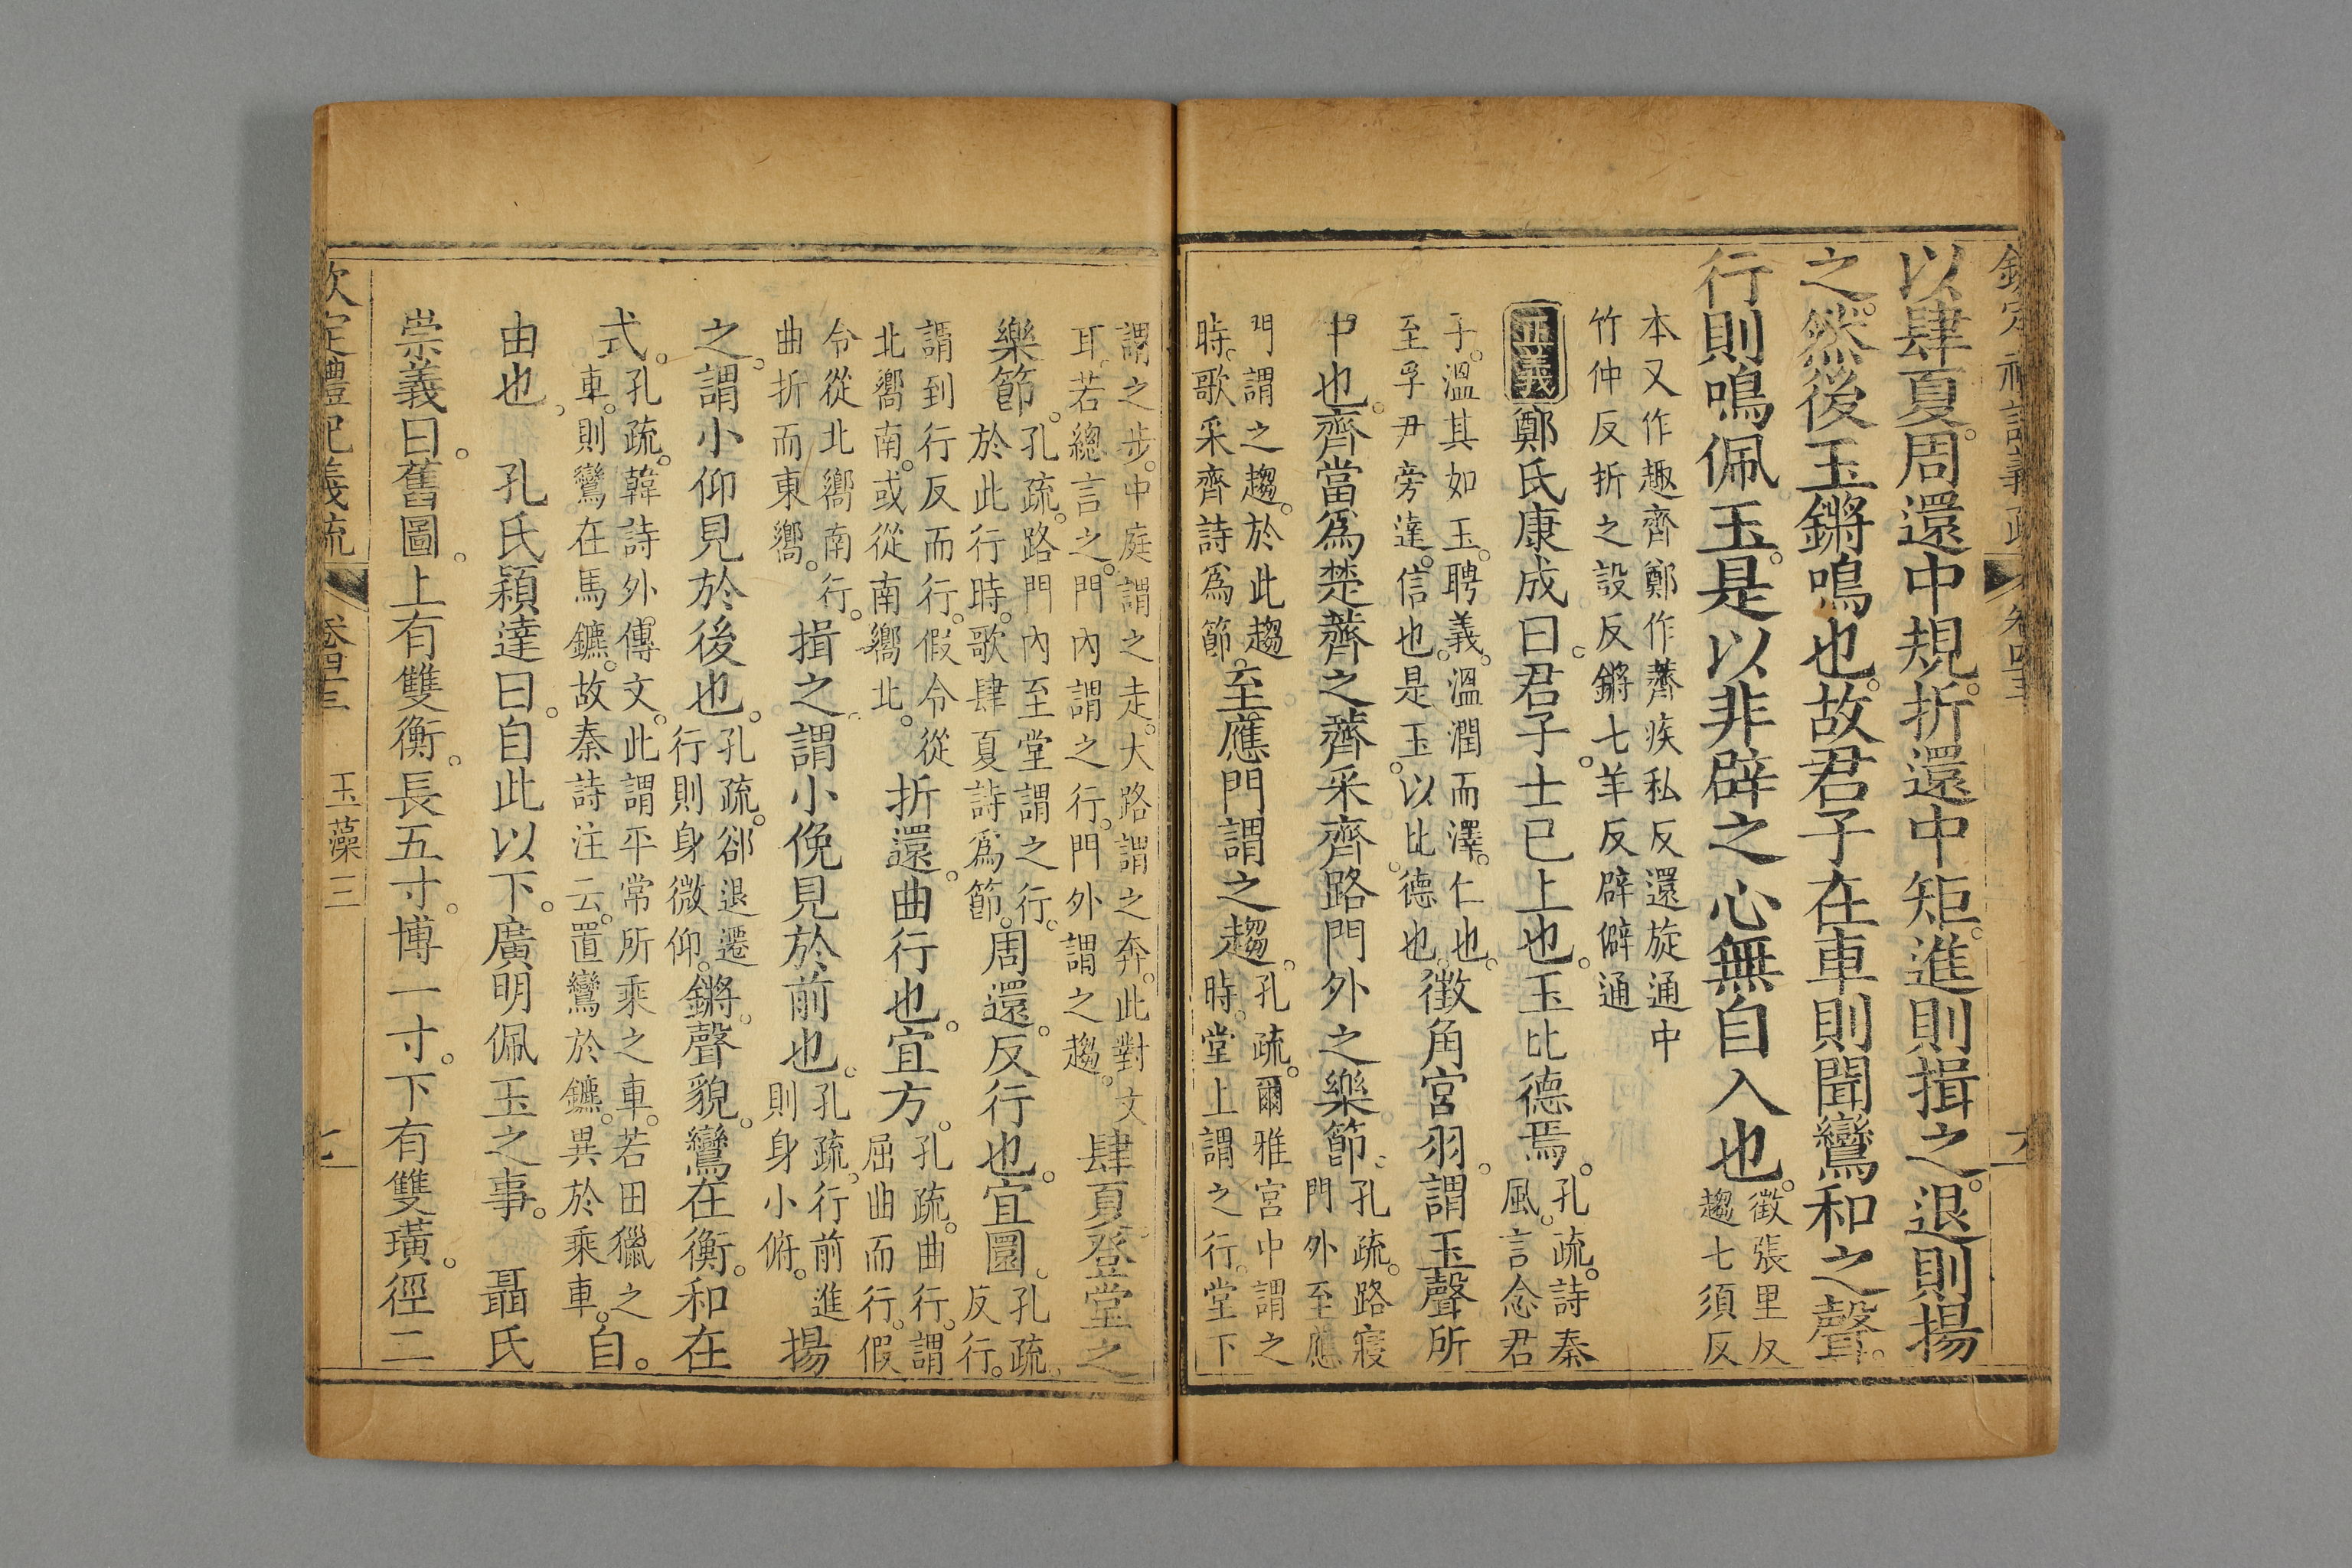 欽定禮記義疏 卷四十三 六
以肆夏。周還中規。折還中矩。進則揖之。退則揚
之。然後玉鏘鳴也。故君子在車則聞鸞和之聲。
行則鳴佩玉。是以非辟之心無自入也。徵張里反
趨七須反
本又作趣齊鄭作薺疾私反還旋通中
竹仲反折之設反鏘七羊反辟僻通
正義鄭氏康成曰。君子。士已上也。玉比德焉。孔疏。詩秦
風。言念君
子。溫其如玉。聘義。溫潤而澤。仁也。
至孚尹旁達。信也。是玉。以比。德也。徵角宮羽。謂玉聲所
中也。齊當為楚薺之薺采齊路門外之樂節。孔疏。路寢
門外至應
門謂之趨。於此趨
時。歌采齊詩為節。至應門謂之趨。孔疏。爾雅宮中謂之
時。堂上謂之行。堂下
謂之步。中庭謂之走。大路謂之奔。此對文
耳。若總言之。門內謂之行。門外謂之趨。肆夏登堂之
樂節。孔疏。路門內至堂謂之行。
於此行時。歌肆夏詩為節。周還。反行也。宜圜。孔疏。
反行。
謂到行反而行。假令從
北嚮南。或從南嚮北。折還。曲行也。宜方。孔疏。曲行。謂
屈曲而行。假
令從北嚮南行。
曲折而東嚮。揖之謂小俛見於前也。孔疏。行前進
則身小俯。揚
之。謂小仰見於後也。孔疏。郤退遷
行則身微仰。鏘。聲貌。鸞在衡。和在
式。孔疏。韓詩外傳文。此謂平常所乘之車。若田獵之
車。則鸞在馬鑣。故秦詩注云。置鸞於鑣。異於乘車。自。
由也。 孔氏穎達曰。自此以下。廣明佩玉之事。 聶氏
崇義曰。舊圖。上有雙衡。長五寸。博一寸。下有雙璜。徑二
欽定禮記義疏 卷四十三 玉藻三 七